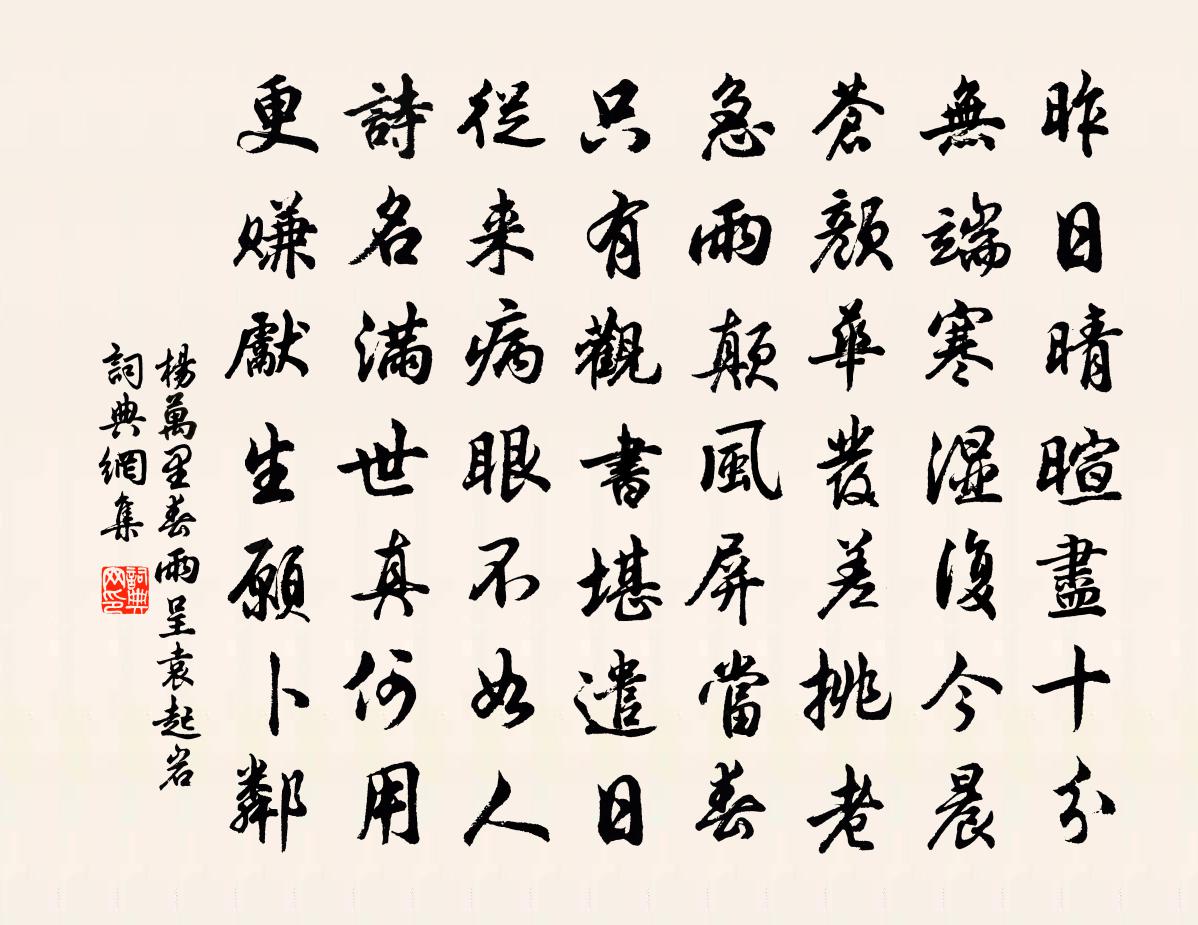 昨日晴暄盡十分
無端寒濕復今晨
蒼顏華發差挑老
急雨顛風屏當春
只有觀書堪遣日
從来病眼不如人
詩名滿世真何用
更賺獻生願卜鄰
楊萬里春雨呈袁起岩
詞典網集
詞典
网印